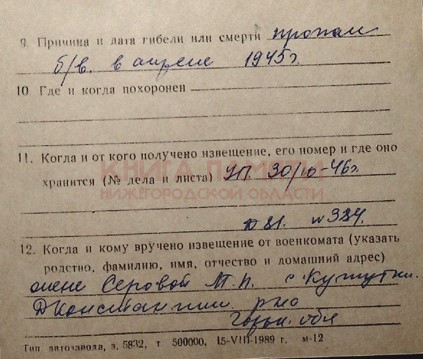 9. Причина и дата гибели или смерти пропал
б/в. в апреле 1945г.
10 Где и когда похоронен
КНИГА ПАМЯТИ
НИЖЕГОРОДСКОЙ ОБЛАСТИ
11. Когда и от кого получено извещение, его номер и где оно
хранится (№ дела и листа) УП 30/10-46г.
д 81. № 384.
12. Когда и кому вручено извещение от военкомата (указать
родство, фамилию, имя, отчество и домашний адрес)
жене Серовой М. с. Кужутки
Д Константин. р-но
Горьк. обл
Тип. автозавода, з. 5832, т 500000, 15-VIII-1989 г. м-12